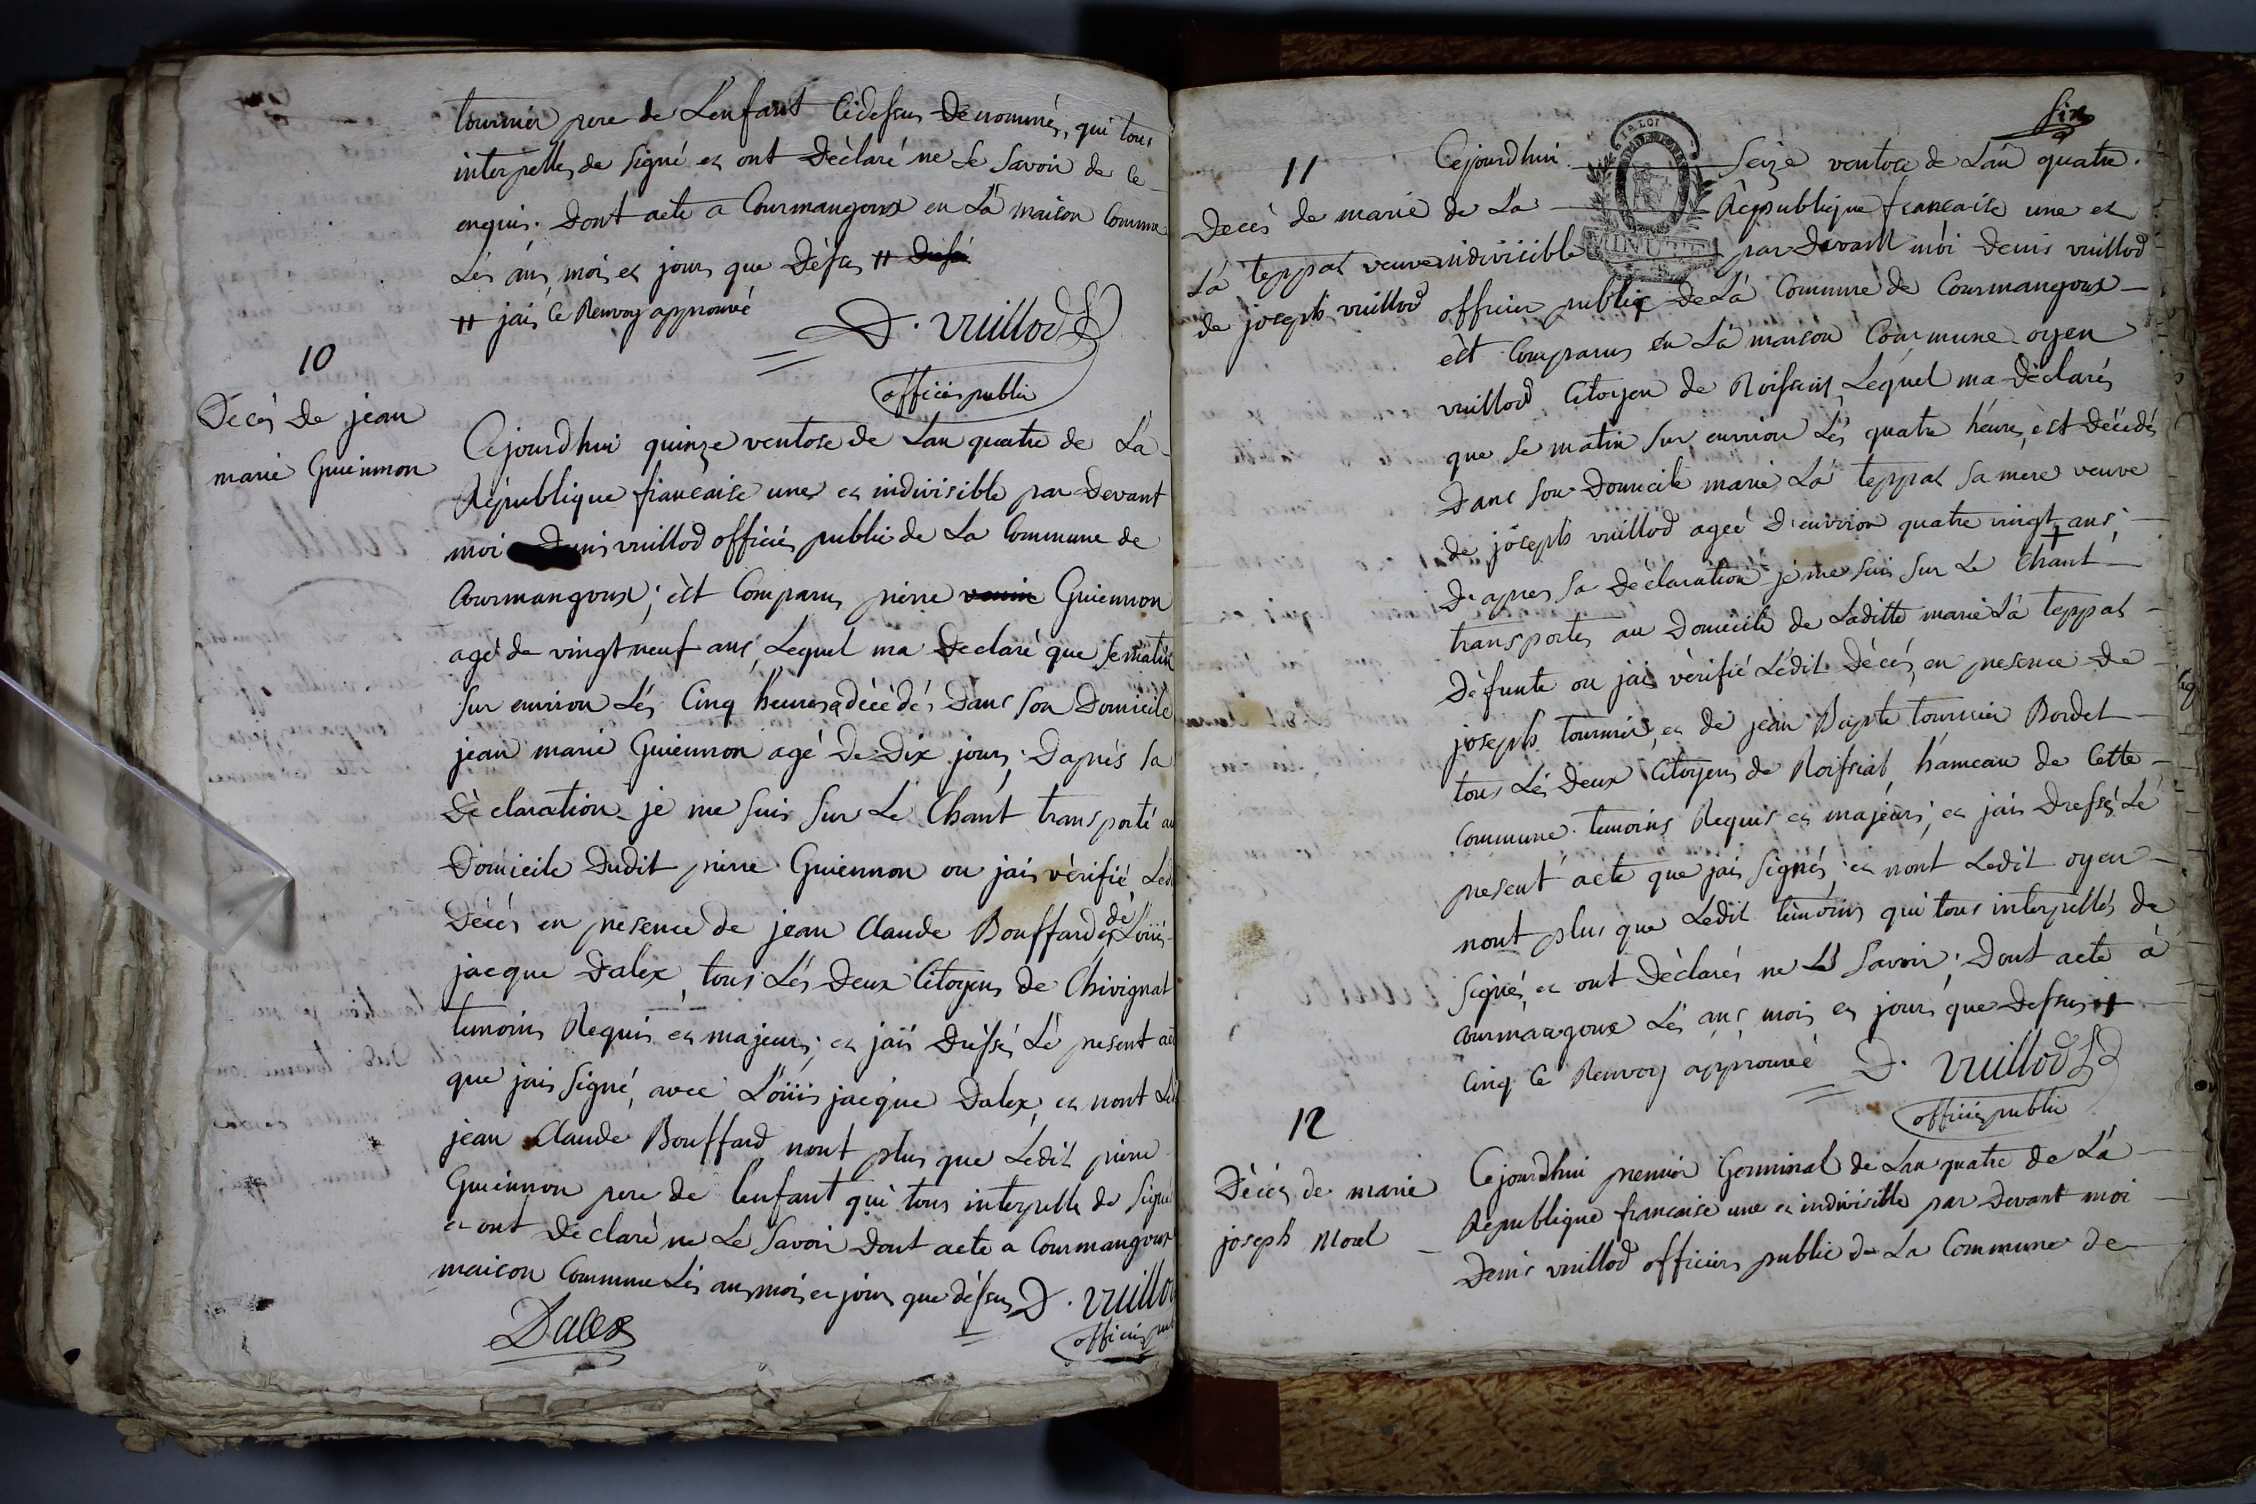 tournier pere de L'enfant Cidessus Denommés, qui tous
interpelles de signé es ont Déclaré ne Le Savoir de ce
enquis. Dont acte a Courmangoux en La maison Commune
Les ans, mois es jours que Dessus # Dressé
# jais Ce Renvoy approuvé
D. vuillod
officier public
10
Décès De jean
marie Guiennon
Cejourdhui quinze ventose de Lan quatre de La
République francaise une es indivisible par Devant
moi Denis vuillod officiés public de La Commune de
Courmangoux; èst Comparus pierre Guiennon
agé de vingt neuf ans, Lequel ma Declaré que se matin
sur environ Lés Cinq heures a décédés Dans son Domicile
jean marie Guiennon agé De Dix jours; Daprés sa
Déclaration je me suis sur Le Chant transporté au
Domicile Dudit pierre Guiennon ou jais vérifié Led
Décés en presence de jean Claude Bouffard es de Loüis
jacque Dalex, tous Lés Deux Citoyens de Chivignat
temoins Requis es majeurs; es jais Dréssés Lé present act
que jais signé, avec Loüis jacque Dalex, es nont Led
jean Claude Bouffard nont plus que Ledit pierre
Guiennon pere de lenfant qui tous interpelle de signé
es ont Déclaré ne Le Savoir Dont acte a Courmangoux
maison Commune Lés ans, mois es jours que dessus D. vuillod
Dalex
officiés pub
six
11
Decès de marie
La teppat veuve
de joseph vuillod
Cejourdhui Seize ventose de Lan quatre
de La République francaise une es
indivicible par Devant moi Denis vuillod
LA LOI
MINUTE
officier public de La Commune de Courmangoux
èst Comparus en La maison Commune oyen
vuillod Citoyen de Roissiat, Lequel ma Déclarés
que se matin sur environ Lés quatre héures, èst Décédés
Dans son Domicile marie La teppat sa mere veuve
de joseph vuillod ageé D'environ quatre vingt ans;
D'apres sa Déclaration je me suis sur Le Chant
transportes au Domicile de Laditte marie La teppat
Défunte ou jais vérifié Lédit Décés, en presence de
joseph tournier, es de jean Bapte tournier Bordet
tous Lés Deux Citoyens de Roissiat, hameau de Cette
Commune. temoins Requis es majeurs; es jais Dressés Lé
present acte que jais signés, es nont Ledit oyen
nont plus que Ledit témoins qui tous interpellés de
signés, es ont Déclarés ne Le Savoir; Dont acte à
Courmangoux Lés ans, mois es jours que Dessus #
Cinq Ce Renvoy approuvé D. vuillod
officiés public
12
Décès de marie
joseph Morel
Cejourdhui premier Germinal de Lan quatre de La
République francaise une es indivisible par Devant moi
Denis vuillod officiers public de La Commune de